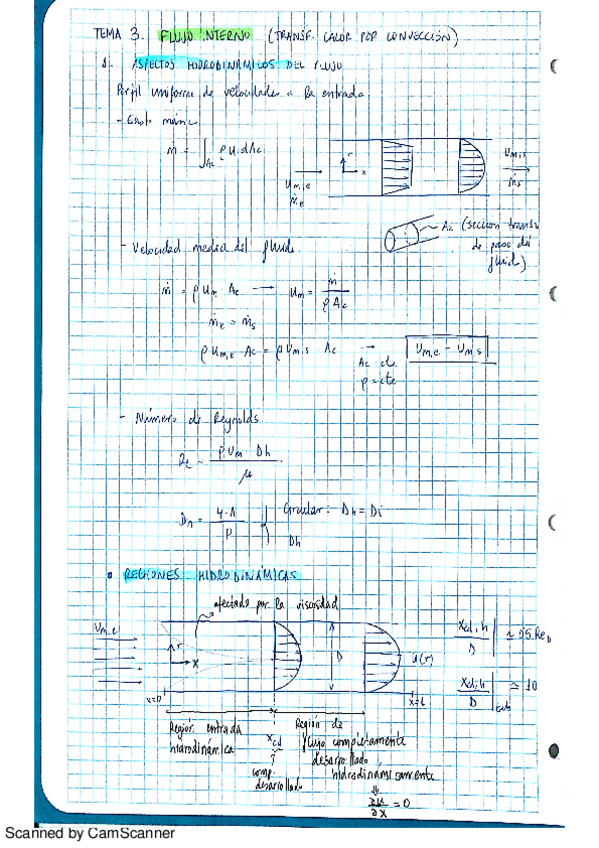 TEMA 3. FLUJO INTERNO (TRANSF. CALOR POR CONVECCIÓN)
1. ASPECTOS HIDRODINÁMICOS DEL FLUJO
Perfil uniforme de velocidades a la entrada
- Gasto másico
ṁ = ∫Ac ρ u dAc
r
x
Um,e
ṁe
Um,s
ṁs
Ac (seccion transv
de paso del
fluido)
- Velocidad media del fluido
ṁ = ρ Um Ac → Um = ṁ / ρ Ac
ṁe = ṁs
ρ Um,e Ac = ρ Um,s Ac → Um,e = Um,s
Ac cte
ρ = cte
- Número de Reynolds
Re = ρ Um Dh / μ
Dh = 4·A / P } Circular: Dh = Di
Dh
• REGIONES HIDRODINÁMICAS
afectado por la viscosidad
Um,e
r
x
D
u(r)
x=0
x=L
Xcd,h / D | ≃ 0.05 ReD
Xcd,h / D | ≃ 10
Región entrada
hidrodinámica
Xcd
↑
comp
desarrollado
Región de
flujo completamente
desarrollado
hidrodinámicamente
⇓
∂u / ∂x = 0
Scanned by CamScanner